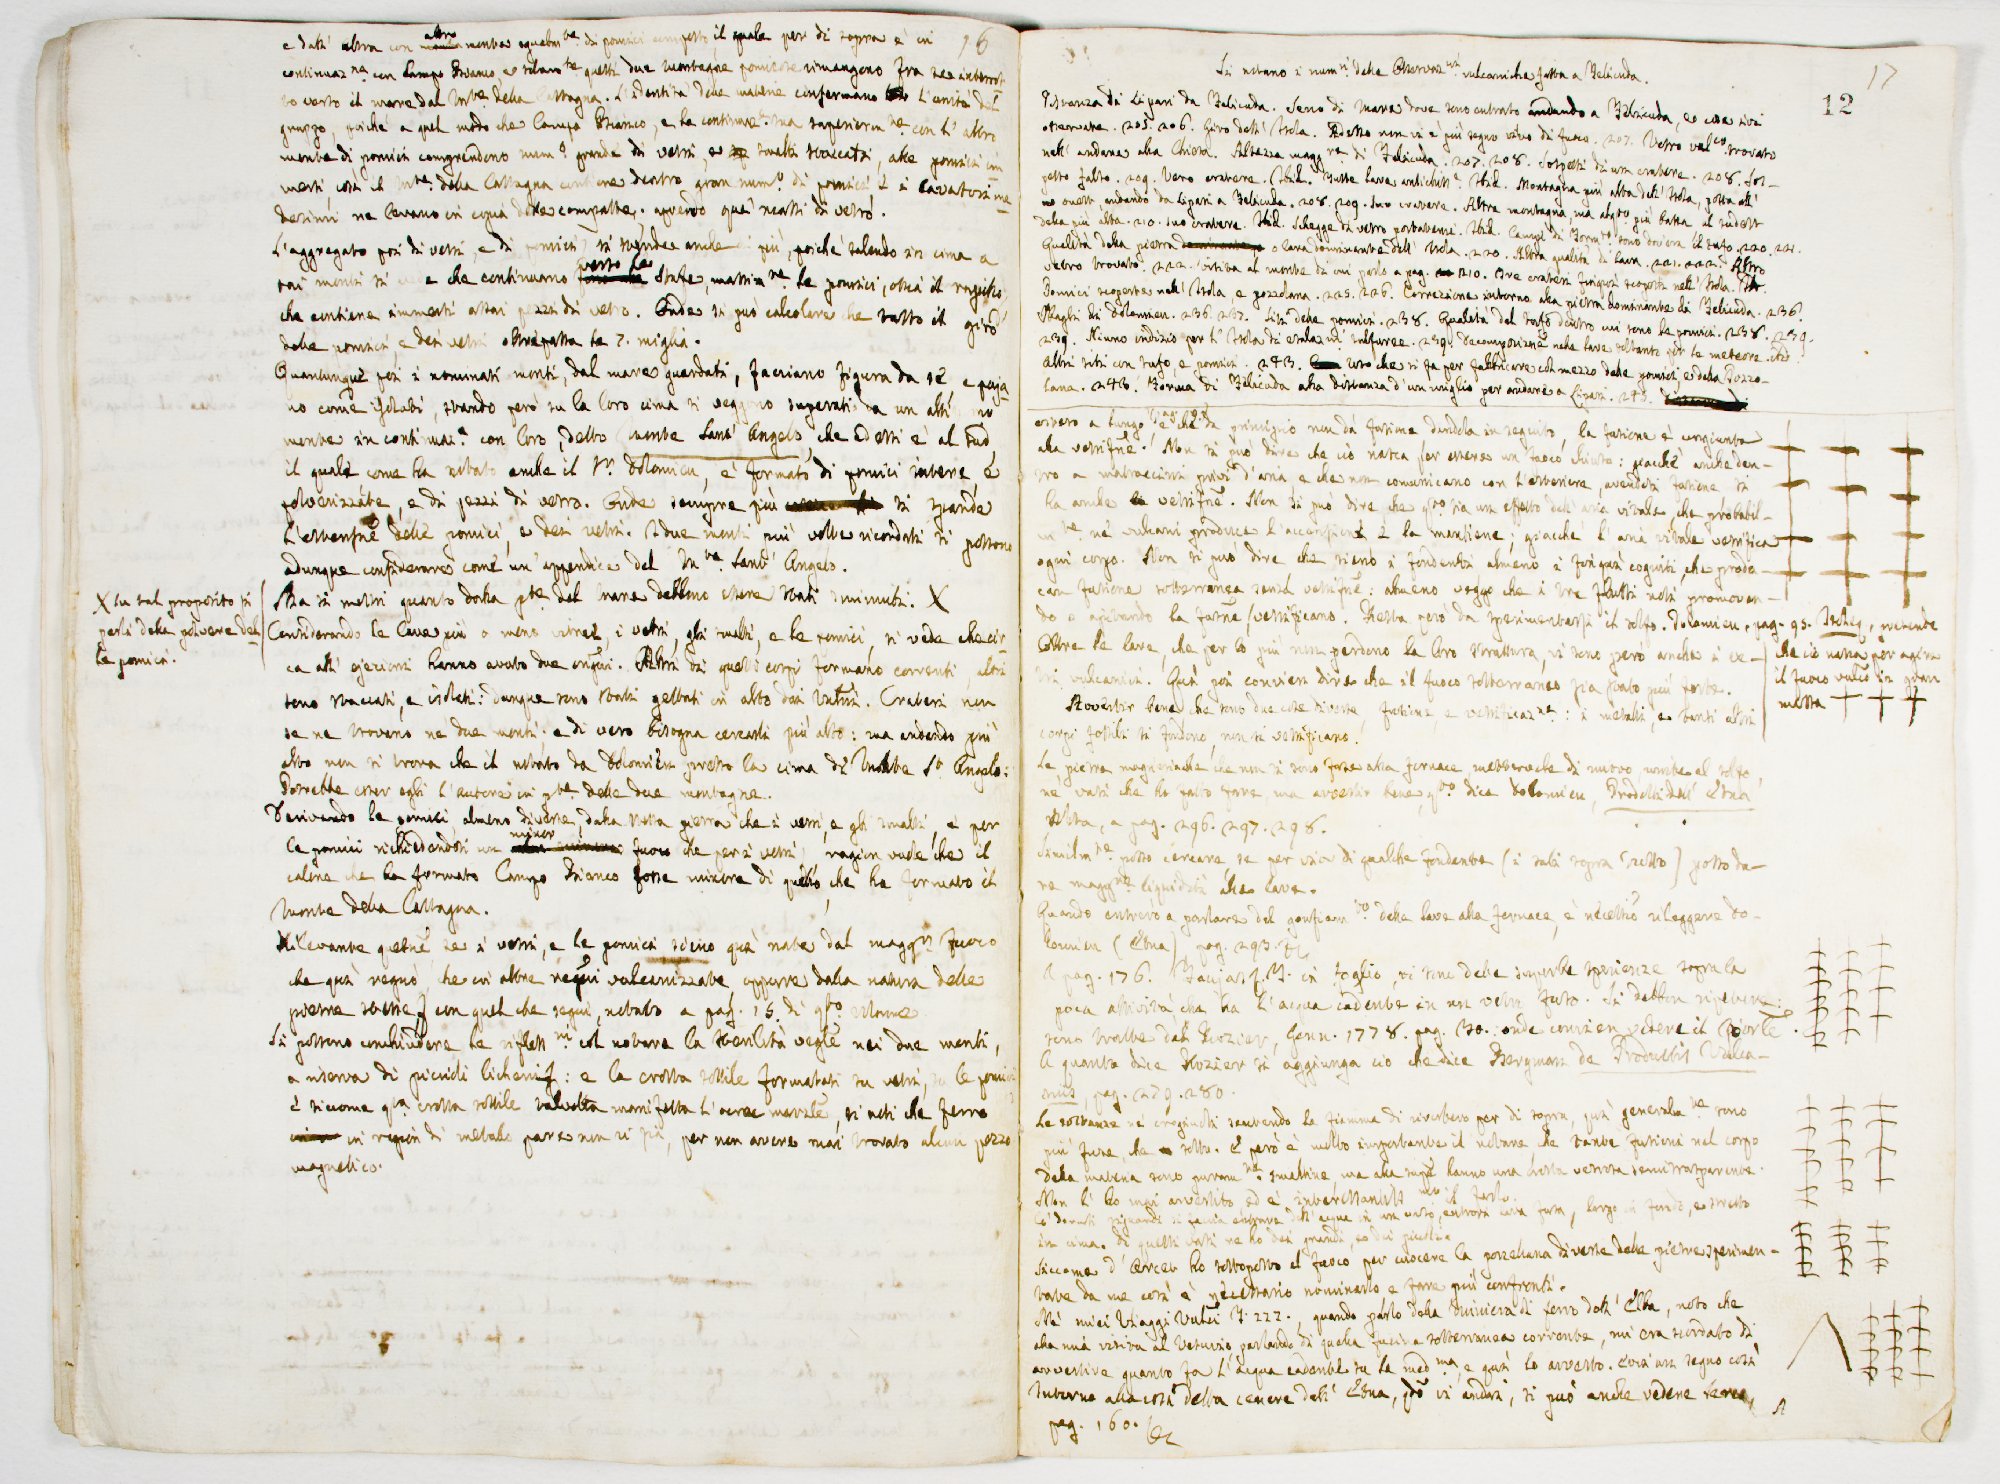 16
e dall' altra con altro monte egualm.te di pomici composto il quale per di sopra è in
continuaz.ne con Campo Bianco, e solam.te questi due montagne pomicose rimangono fra se interrot-
te verso il mare dal M.te della Castagna. L'identità delle materie confermano l'unità del
gruppo, poiché a quel modo che Campo Bianco, e la continuaz.ne sua superiorm.te con l' altro
monte di pomici comprendono num.o grande di vetri, e smalti staccati, alle pomici im
mersi così il M.te della Castagna contiene dentro gran num.o di pomici. E i cavatori me
desimi ne levano in copia delle compatte, avendo qua' neassi di vetro.
L'aggregato poi di vetri, e di pomici si stende anche di più, poiché salendo in cima a
tai monti si vede che continuano verso le Stufe, massim.te le pomici, ossia il rapillo,
che contiene immersi assai pezzi di vetro. Onde si può calcolare che tutto il giro
delle pomici, e dei vetri oltrepassa le 7. miglia.
Quantunque poi i nominati monti, dal mare guardati, facciano figura da sé e paja
no come isolati, stando però su la loro cima si veggono superati da un altissimo
monte in continuaz.e con loro, detto monte Sant' Angelo, che ad essi è al sud,
il quale come ha notato anche il Sr. Dolomieu, è formato di pomici intere, e
polverizzate, e di pezzi di vetro. Onde sempre più si spande
l'estensne delle pomici, e dei vetri. I due monti più volte ricordati si possono
adunque considerare come un' appendice del M.te Sant' Angelo.
Ma si mostri quanto dalla p.te del mare debbono essere stati sminuiti. X
X su tal proposito si
parli della polvere del
le pomici.
Considerando le lave più o meno vitree, i vetri, gli smalti, e le pomici, si vede che cir
ca all' ejezioni hanno avuto due origini. Altri di questi corpi formano correnti altri
sono staccati, e isolati: dunque sono stati gettati in alto dai Vulcni. Crateri non
se ne trovano ne' due monti: e di vero bisogna cercarli più alto: ma andando più
alto non si trova che il notato da Dolomieu presso la cima di Monte S. Angelo:
Potrebbe esser egli l'autore in p.te delle due montagne.
Derivando le pomici almeno diverse, dalla stessa pietra che i vetri, e gli smalti, e per
le pomici richiedendosi un minor fuoco che per i vetri, ragion vuole che il
calore che ha formato Campo Bianco fosse minore di quello, che ha formato il
Monte della Castagna.
Rilevante questne se i vetri, e le pomici sieno qui nate dal magg.r fuoco
che qui regnò, che in altre regni vulcanizzate oppure dalla natura delle
pietre stesse, con quel che segue, notato a pag. 15. di q.to volume
Si possono conchiudere le rifless.ni col notare la sterilità vegle nei due monti,
a riserva di piccioli licheni: e la crosta sottile formatasi su vetri, su le pomici
E siccome q.ta crosta sottile talvolta manifesta l'ocree marzile, si noti che ferro
in region di metallo pare non vi sia, per non avere mai trovato alcun pezzo
magnetico.
17
12
Si notano i num.ri delle Osservaz.ni vulcaniche fatte a Felicuda.
Distanza di Lipari da Felicuda. Seno di Mare dove sono entrato andando a Felicuda, e cose ivi
osservate. 205. 206. Giro dell' Isola. Adesso non vi è più segno vivo di fuoco. 207. Vetro vulc.o trovato
nell' andare alla Chiesa. Altezza magg.re di Felicuda. 207. 208. Sospetti di un cratere. 208. Sos-
petto falso. 209. Vero cratere. Ibid. Tutte lave antichiss.e Ibid. Montagna più alta dell' Isola, posta all'
ovest, andando da Lipari a Felicuda. 208. 209. suo cratere. Altra montagna, ma alq.to più bassa al sudest
della più alta. 210. suo cratere. Ibid. Schegge di vetro portatemi. Ibid. Campi di Form.to sono dov'era il tufo. 220. 221.
Qualità della pietra o lava dominante dell' Isola. 220. Altra qualità di lava. 221. 222. Altro
vetro trovato. 222. Visita al monte di cui parlo a pag. 210. Tre crateri finqui scoperti nell' Isola. Ibi.
Pomici scoperte nell' Isola, e pozzolana. 225. 226. Correzione intorno alla pietra dominante di Felicuda. 236.
Sbaglj di Dolomieu. 236. 237. Siti delle pomici. 238. Qualità del tufo dentro cui sono le pomici. 238. 239.
239. Niuno indizio per l' Isola di esalaz.ni sulfuree. 239. Decomposizione nelle lave soltanto per le meteore. ibid
Altri siti con tufo e pomici. 243. Uso che si fa per fabbricare col mezzo delle pomici, e della Pozzo-
lana. 243. Forma di Felicuda alla distanza d' un miglio per andare a Lipari. 243.
ossero a lungo e che da principio non dà fusione dandola in seguito, la fusione è congiunta
alla vetrifne. Non si può dire che ciò nasca per essere un fuoco chiuso: giacché anche den-
tro a matraccini privi d'aria e che non comunicano con l'esteriore, avendosi fusione si
ha anche vetrifne. Non si può dire che q.to sia un effetto dell' aria vitale che probabil-
m.te ne' vulcani produce l'accensione e la mantiene; giacché l'aria vitale vetrifica
ogni corpo. Non si può dire che sieno i fondenti almeno i finqui cogniti, che produ-
can fusione sotterranea senza vetrifne: almeno veggo che i tre flussi noti promoven-
do o ajutando la fusne, vetrificano. Resta però da sperimentarsi il solfo. Dolomieu, pag. 95. Ischia, pretende
che ciò nasca per agire
il fuoco vulco in gran
massa
Oltre le lave, che per lo più non perdono la loro struttura, vi sono però anche i ve-
tri vulcanici. Qui poi convien dire che il fuoco sotterraneo sia stato più forte.
Avvertir bene che sono due cose diverse, fusione e vetrificaz.ne: i metalli, e tanti altri
corpi fossili si fondono, non si vetrificano.
Le pietre magnesiache che non si sono fuse alla fornace, metterolle di nuovo, unite al solfo,
ne' vasi che ho fatto fare, ma avvertir bene q.to dice Dolomieu, Prodotti dell' Etna
Alba, a pag. 296. 297. 298.
Similm.te posso cercare se per via di qualche fondente (i sali sopra tutto) posso da-
re magg.re liquidità alle lave.
Quando entrerò a parlare del gonfiam.to della lave alla fornace, è necessrio rileggere Do-
lomieu (Etna) pag. 293. &c
A pag. 176. Faujas in foglio, vi sono delle superbe sperienze sopra la
poca attività che ha l'acqua cadente in un vetro fuso. Si debbon ripetere:
sono tratte dal Rozier, Genn. 1778. pag. 30.: onde convien vedere il Giorle.
A quanto dice Rozier si aggiunga ciò che dice Bergman de Productis Vulca-
niis, pag. 279. 280.
Le sostanze ne' crogiuoli sentendo la fiamma di riverbero per di sopra, qui generalm.te sono
più fuse, che sotto. E però è molto importante il notare, che tante fusioni nel corpo
della materia sono puram.te smaltine, ma alla supe hanno una crosta vetrosa semitrasparente.
Non l' ho mai avvertito ed è interessantiss.mo il farlo.
Co' dovuti riguardi si faccia entrare dell' acqua in un vaso, entrovi lava fusa, largo in fondo, e stretto
in cima. Di questi vasi ne ho dei grandi, e dei piccoli.
Siccome d' Arcet ha sottoposto al fuoco per cuocere la porcellana diverse delle pietre sperimen-
tate da me così è necessario nominarlo, e fare più confronti.
Ne' miei Viaggi Vulci T. 222., quando parlo della miniera di ferro dell' Elba, noto che
alla mia visita al Vesuvio parlando di quella fucina sotterranea corrente, mi era scordato di
avvertire quanto fa l'acqua cadente su la med.ma, e quì lo avverto. Evvi un segno così
Intorno alla così detta cenere dell' Etna, q.do vi andrò, si può anche vedere
pag. 160. &c